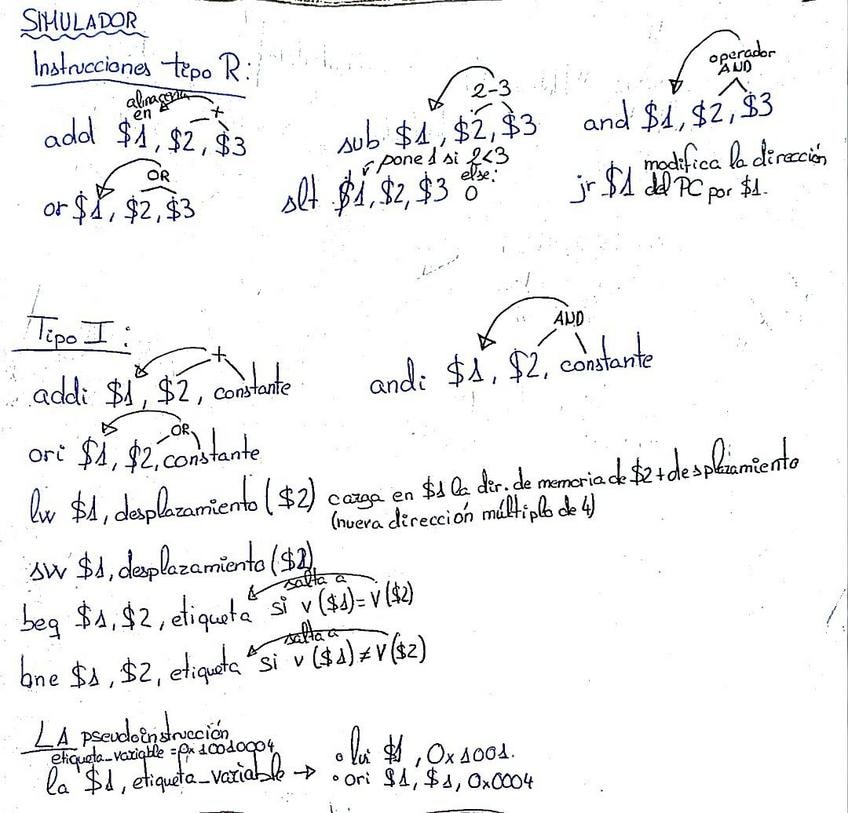 SIMULADOR
Instrucciones tipo R:
almacena en +
add $1, $2, $3
2-3
sub $1, $2, $3
operador AND
and $1, $2, $3
OR
or $1, $2, $3
pone 1 si 2<3
else: 0
slt $1, $2, $3
jr $1 modifica la dirección
del PC por $1.
Tipo I:
+
addi $1, $2, constante
AND
andi $1, $2, constante
OR
ori $1, $2, constante
lw $1, desplazamiento ($2) carga en $1 la dir. de memoria de $2 + desplazamiento
(nueva dirección múltiplo de 4)
sw $1, desplazamiento ($2)
salta a
beq $1, $2, etiqueta si v($1) = v($2)
salta a
bne $1, $2, etiqueta si v($1) ≠ v($2)
LA pseudoinstrucción
etiqueta_variable = 0x10010004
la $1, etiqueta_variable → • lui $1, 0x1001.
• ori $1, $1, 0x0004